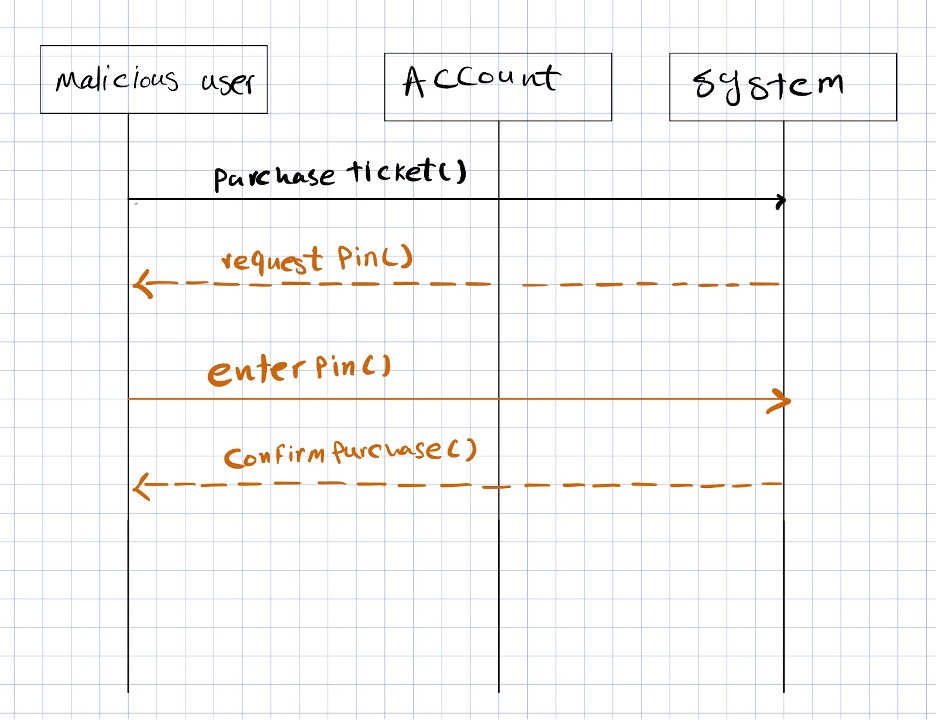 Malicious user
Account
System
purchase ticket()
request Pin()
enter Pin()
Confirm Purchase()